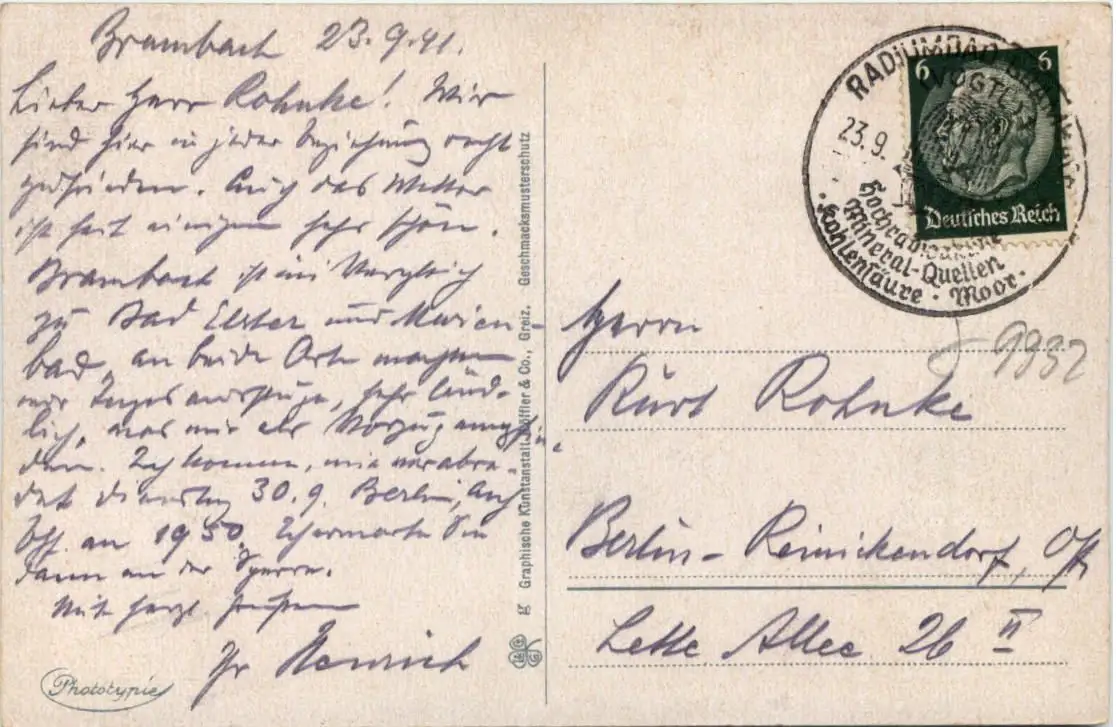 Brambach 23.9.41.
Lieber Herr Rohnke! Wir
sind hier in jeder Beziehung recht
zufrieden. Auch das Wetter
ist seit einigen sehr schön.
Brambach ist im Vergleich
zu Bad Elster und Marien-
bad, an beide Orte machten
wir Tagesausflüge, sehr länd-
lich, was wir als Vorzug empfin-
den. Ich komme, wie verabre-
det Dienstag 30.9. Berlin, Anh
Bhf. an 19 50. Ich erwarte Sie
dann an der Sperre.
Mit herzl. Grüßen
Ihr
Phototypie
Graphische Kunstanstalt Löffler & Co., Greiz. Geschmacksmusterschutz
RADIUMBAD BRAMBACH
VOGTL
23.9.
Hochradioaktive
Mineral-Quellen
Kohlensäure · Moor ·
6 6
Deutsches Reich
9932
Herrn
Kurt Rohnke
Berlin-Reinickendorf, Ost
Lette Allee 26 II